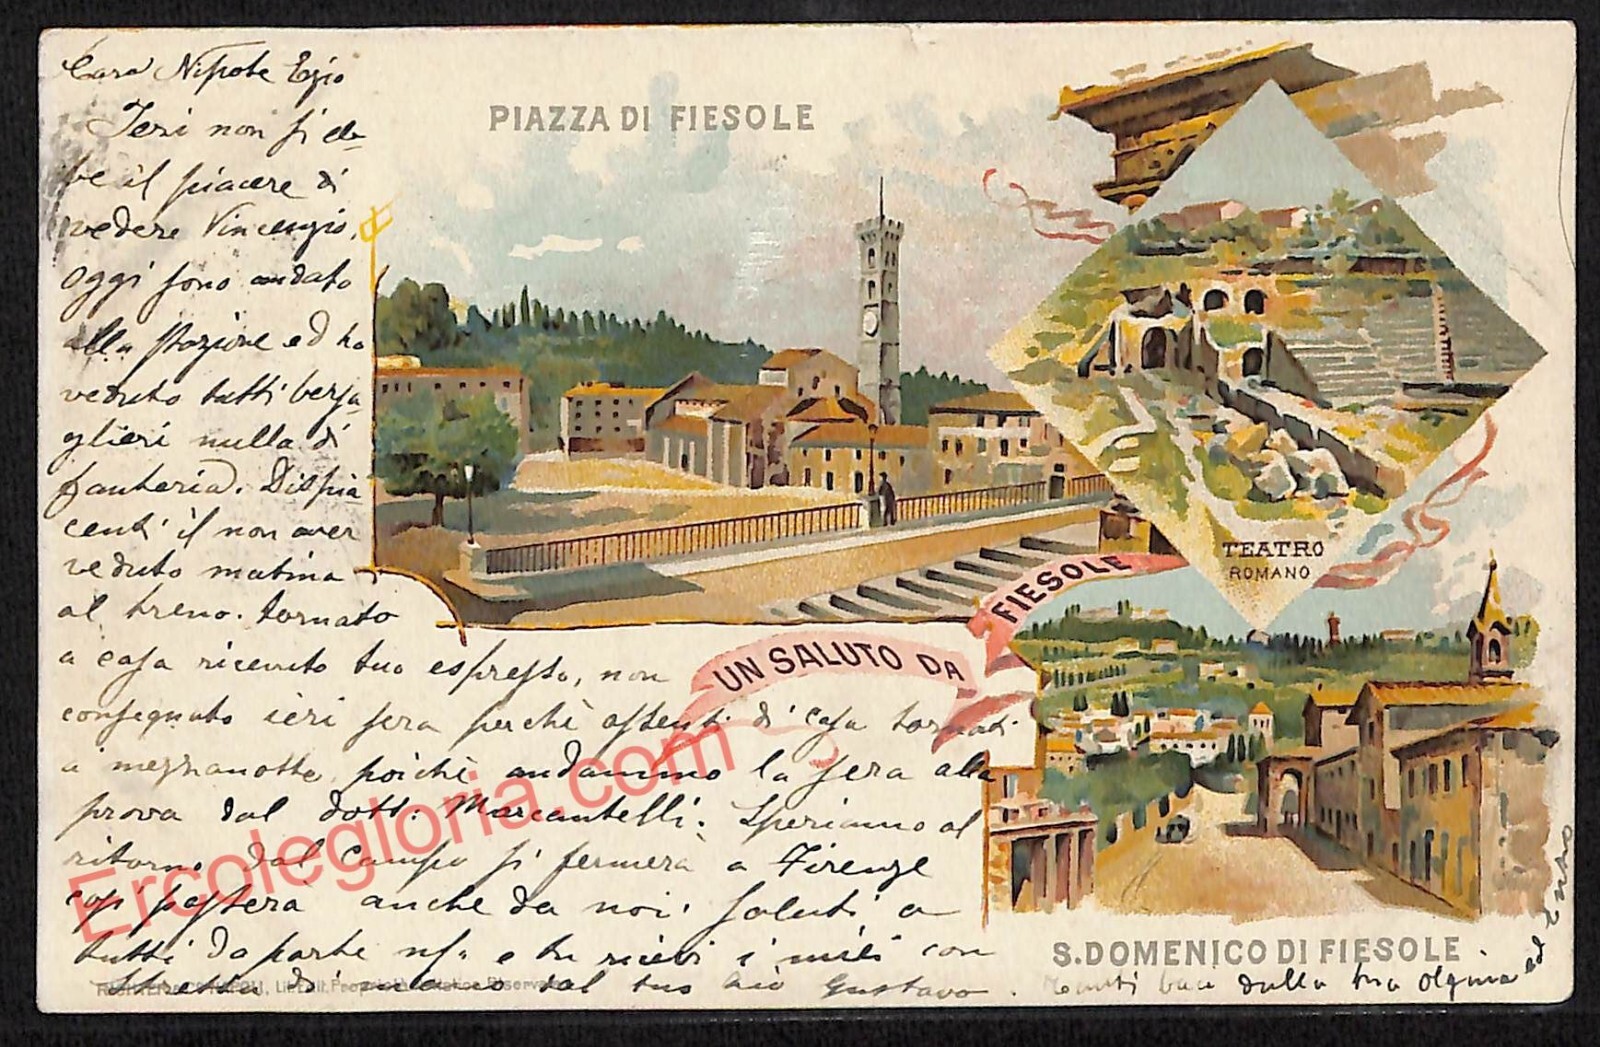 PIAZZA DI FIESOLE
TEATRO
ROMANO
UN SALUTO DA FIESOLE
S. DOMENICO DI FIESOLE
Caro Nipote Egio
Ieri non si eb=
be il piacere di
vedere Vincenzio,
oggi sono andato
alla stazione ed ho
veduto tutti bersa=
glieri nulla di
fanteria. Dispia
centi il non aver
veduto matina
al treno. tornato
a casa ricevuto tuo espresso, non
consegnato ieri sera perchè assenti di casa tornati
a mezzanotte, poichè andammo la sera alla
prova dal dott. Marcantelli. Speriamo al
ritorno dal campo si fermerà a Firenze
così passerà anche da noi. Saluti a
tutti da parte ns. e tu ricevi i miei con
stretta di mano dal tuo Zio Gustavo.
Tanti baci dalla tua Olginia ed
Ercolegloria.com